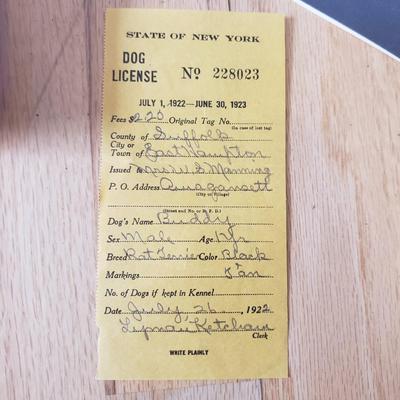 STATE OF NEW YORK
DOG LICENSE No 228023
JULY 1, 1922—JUNE 30, 1923
Fees $2.20 Original Tag No.
(In case of lost tag)
County of Suffolk
City or
Town of East Hampton
Issued to Mrs W S Manning
P. O. Address Amagansett
(City or Village)
(Street and No. or R. F. D.)
Dog's Name Buddy
Sex Male Age 1 Yr
Breed Rat Terrier Color Black
Markings Tan
No. of Dogs if kept in Kennel
Date July 26, 1922
Ketcham
Clerk
WRITE PLAINLY